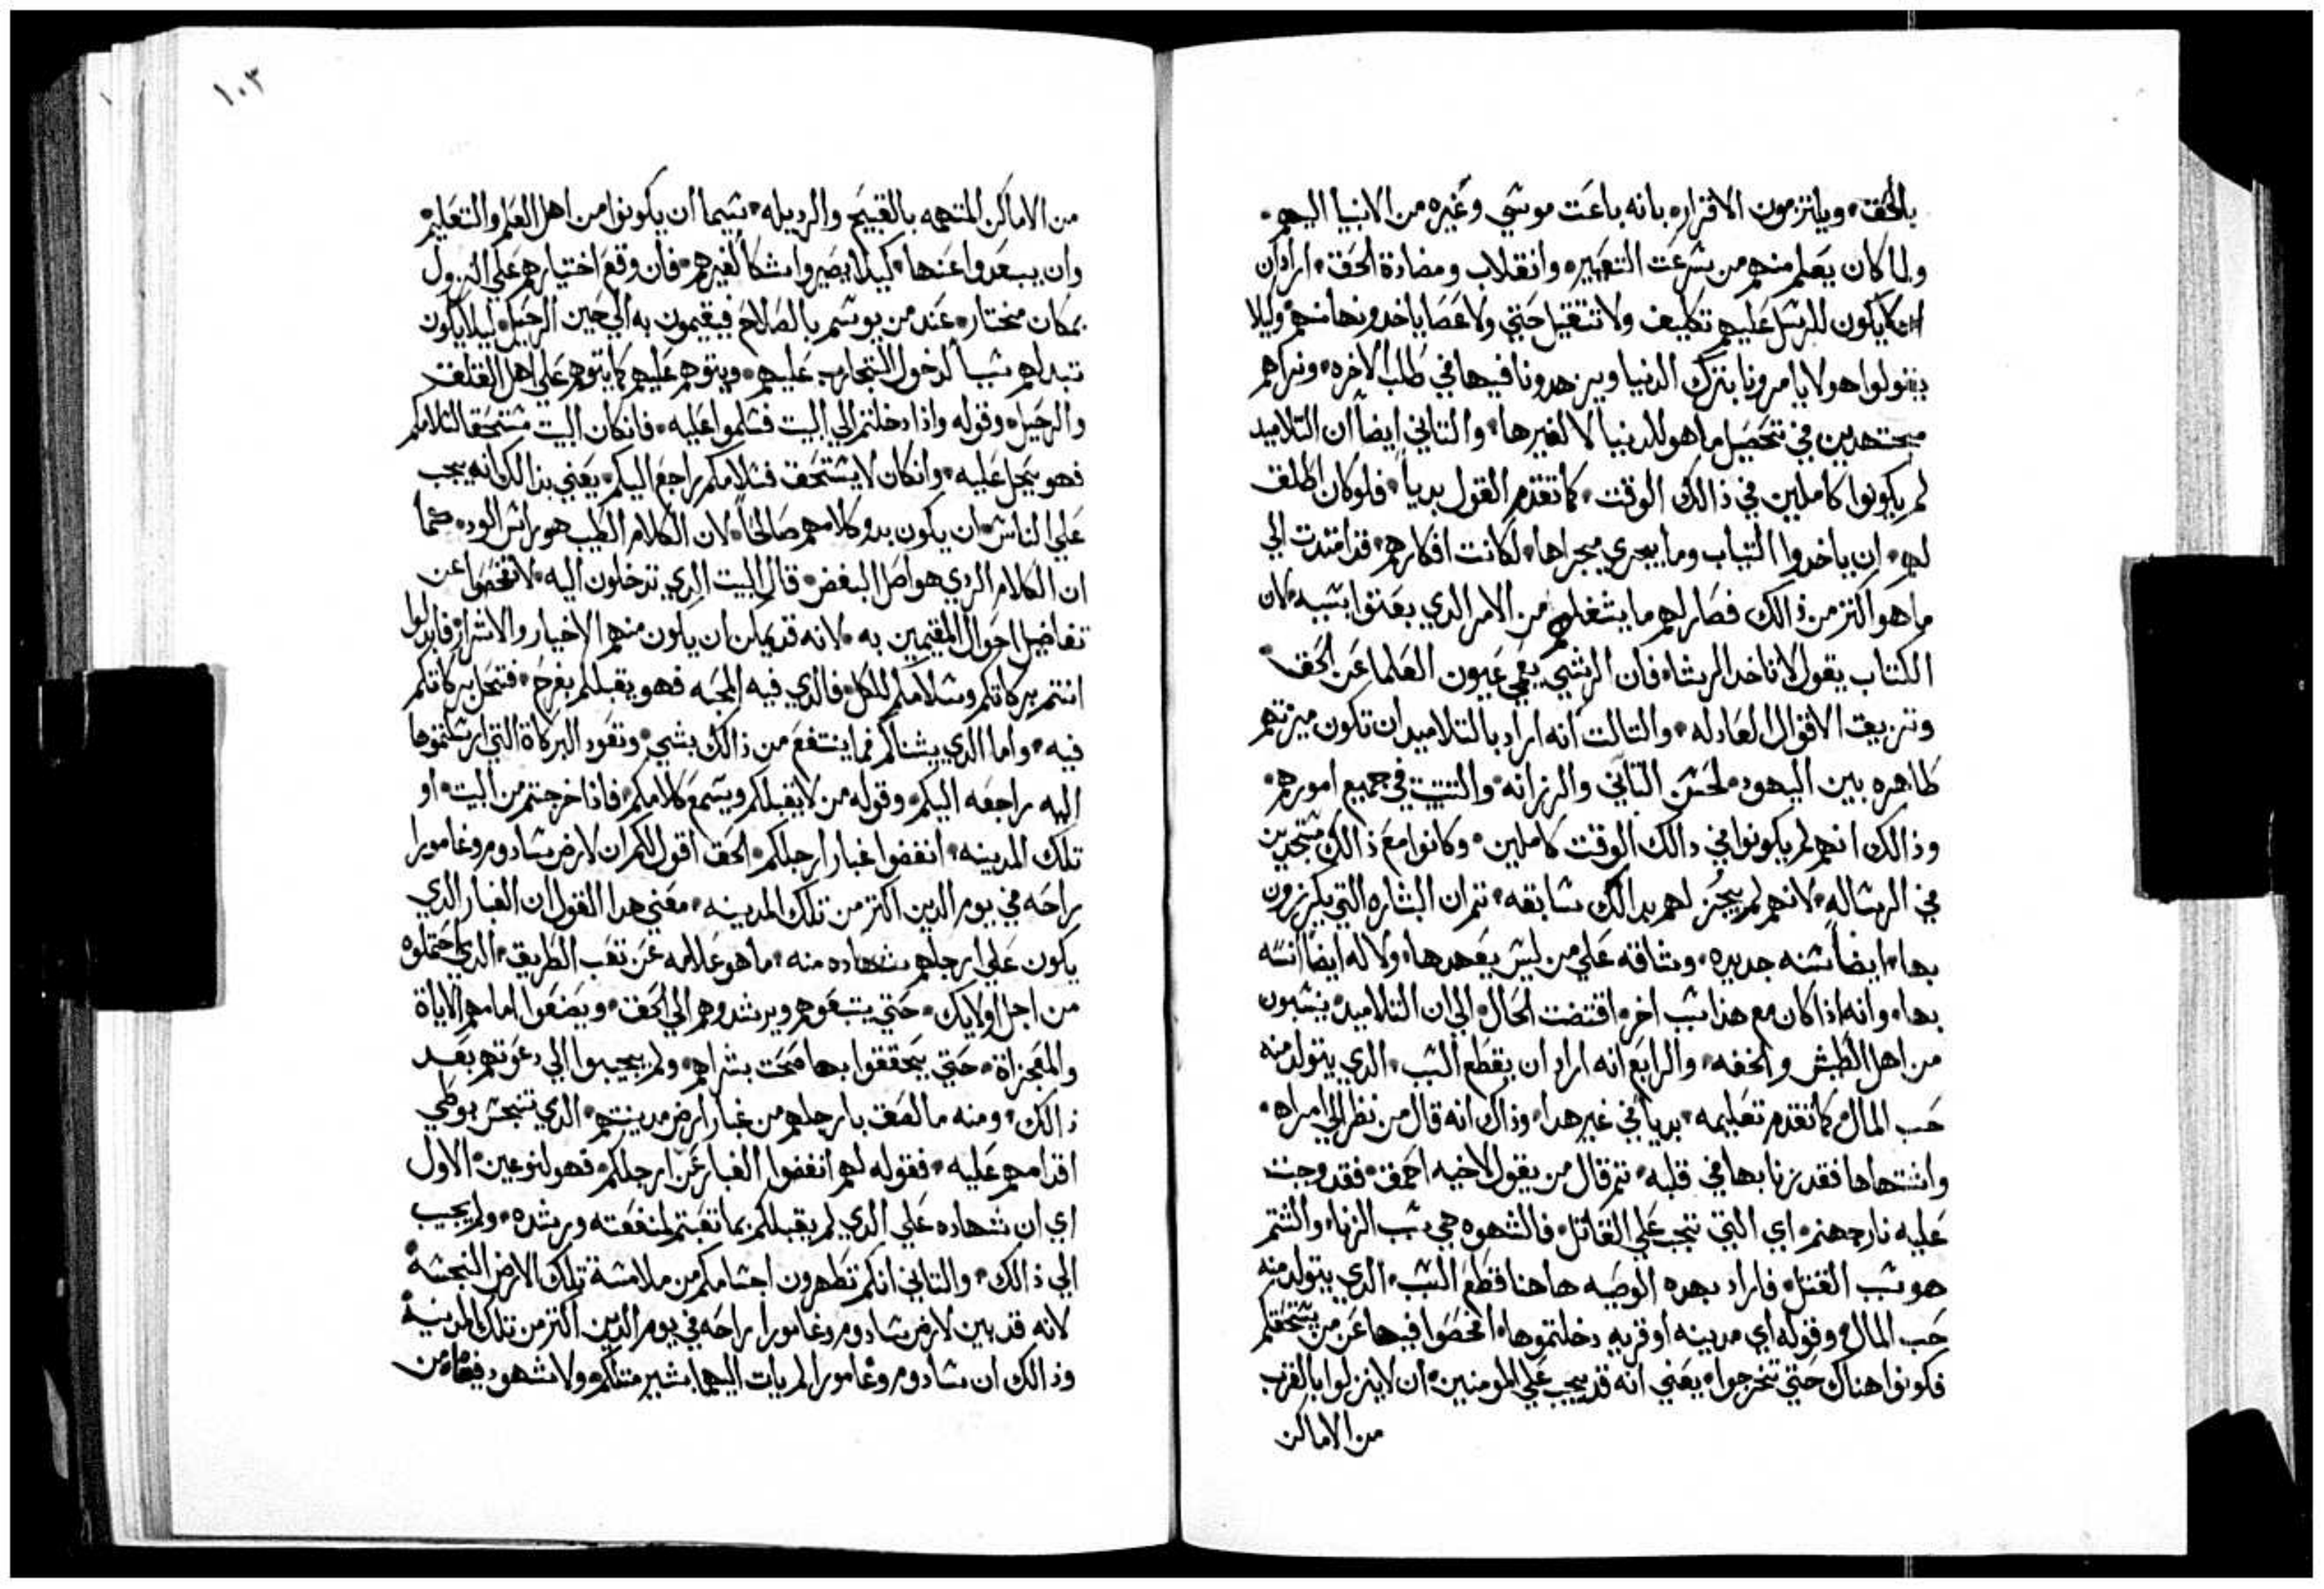 بالحق، ويلتزمون الاقرار، بانه باعت موسي وغيره من الانبيا اليهم،
ولما كان يعلم منهم من سرعت التغيير، وانقلاب ومضادة الحق، اراد ان
لا يكون للرسل عليهم تكليف ولا تتقيل حتي ولا عصا ياخدونها منهم، وليلا
يقولوا هولا يامرونا بترك الدنيا ويزهدونا فيها في طلب الاخره، ونراهم
مجتهدين في تحصيل ما هو للدنيا لا لغيرها، والتاني ايضاً ان التلاميد
لم يكونوا كاملين في ذالك الوقت، كما تقدم القول بدياً، فلو كان اطلق
لهم، ان ياخدوا التياب وما يجري مجراها، لكانت افكارهم، قد امتدت الي
ما هو اكتر من ذالك فصار لهم ما يشغلهم من الامر الدي بعتوا بسببه، لان
الكتاب يقول لا تاخد الرشا، فان الرشي يعمي عيون العلما عن الحق،
وتزيف الاقوال العادله، والتالت انه اراد بالتلاميد ان تكون ميزتهم
طاهره بين اليهود، لحسن التاني والرزانه، والتتبت في جميع امورهم،
وذالك انهم لم يكونوا في دالك الوقت كاملين، وكانوا مع ذالك متجددين
في الرساله، لانهم لم يجز لهم بدالك سابقه، تم ان البشاره التي يكرزون
بها، ايضاً سنه جديده، وشاقه علي من ليس يعهدها، ولا له ايضاً انسه
بها، وانه اذا كان مع هذا سبب اخر، اقتضت الحال، الي ان التلاميد، ينسبون
من اهل الطيش والخفه، والرابع انه اراد ان يقطع السبب، الدي يتولد منه
حب المال، كما تقدم تعليمه، بدياً في غير هدا، وذاك انه قال من نظر الي امراه،
واشتهاها فقد زنا بها في قلبه، تم قال من يقول لاخيه احمق، فقد وجبت
عليه نار جهنم، اي التي تجب علي القاتل، فالشهوه هي سبب الزنا، والشتم
هو سبب القتل، فاراد بهده الوصيه هاهنا قطع السبب، الدي يتولد منه
حب المال، وقوله اي مدينه او قريه دخلتموها، افحصوا فيها عن من يستحقكم
فكونوا هناك حتي تخرجوا، يعني انه قد يجب علي المومنين، ان لا ينزلوا بالقرب
من الاماكن
١٠٣
من الاماكن المتهمه بالقبيح والرديله، سيما ان يكونوا من اهل العلم والتعليم،
وان يبعدوا عنها، كيلا يصيروا شكاً لغيرهم، فان وقع اختيارهم علي النزول
بمكان مختار، عند من يوسم بالصلاح فيقيمون به الي حين الرحيل، ليلا يكون
تبدلهم سبباً لدخول التجارب عليهم، ويتوهم عليهم كما يتوهم علي اهل القلق
والرحيل، وقوله واذا دخلتم الي البيت فسلموا عليه، فان كان البيت مستحقا لسلامكم
فهو يحل عليه، وان كان لا يستحق فسلامكم راجع اليكم، يعني بذالك انه يجب
علي الناس، ان يكون بدو كلامهم صالحاً، لان الكلام الطيب هو راس الود، كما
ان الكلام الردي هو اصل البغض، قال البيت الدي تدخلون اليه، لا تفحصوا عن
تفاضيل احوال المقيمين به، لانه قد يمكن ان يكون منهم الاخيار والاشرار، فابدلوا
انتم بركاتكم وسلامكم للكل، فالذي فيه المحبه فهو يقبلكم بفرح، فتحل بركاتكم
فيه، واما الدي يشناكم فما ينتفع من ذالك بشي، وتعود البركاة التي ارسلتموها
اليه راجعه اليكم، وقوله من لا يقبلكم ويسمع كلامكم، فاذا خرجتم من البيت، او
تلك المدينه، انفضوا غبار ارجلكم، الحق اقول لكم ان لارض سادوم وغامورا
راحه في يوم الدين اكتر من تلك المدينه، معني هدا القول ان الغبار الدي
يكون علي ارجلهم شهاده منه، ما هو علامه عن تعب الطريق، الدي احتملوه
من اجل اولايك، حتي يتبعوهم ويرشدوهم الي الحق، ويضعوا امامهم الاياة
والمعجزاة، حتي يتحققوا بها صحت بشراهم، ولم يجيبوا الي دعوتهم بعد
ذالك، ومنه ما لصق بارجلهم من غبار ارض مدينتهم، الدي تنجس بوطي
اقدامهم عليه، فقوله لهم انفضوا الغبار عن ارجلكم، فهو لنوعين، الاول
اي ان شهاده علي الدي لم يقبلكم بما تعبتم لمنفعته ورشده، ولم يجيب
الي ذالك، والتاني انكم تطهرون اجسامكم من ملامسة تلك الارض النجسة
لانه قد بين لارض سادوم وغامورا راحه في يوم الدين اكتر من تلك المدينة
وذالك ان سادوم وغامورا لم يات اليهما بشير متلكم، ولا شهود